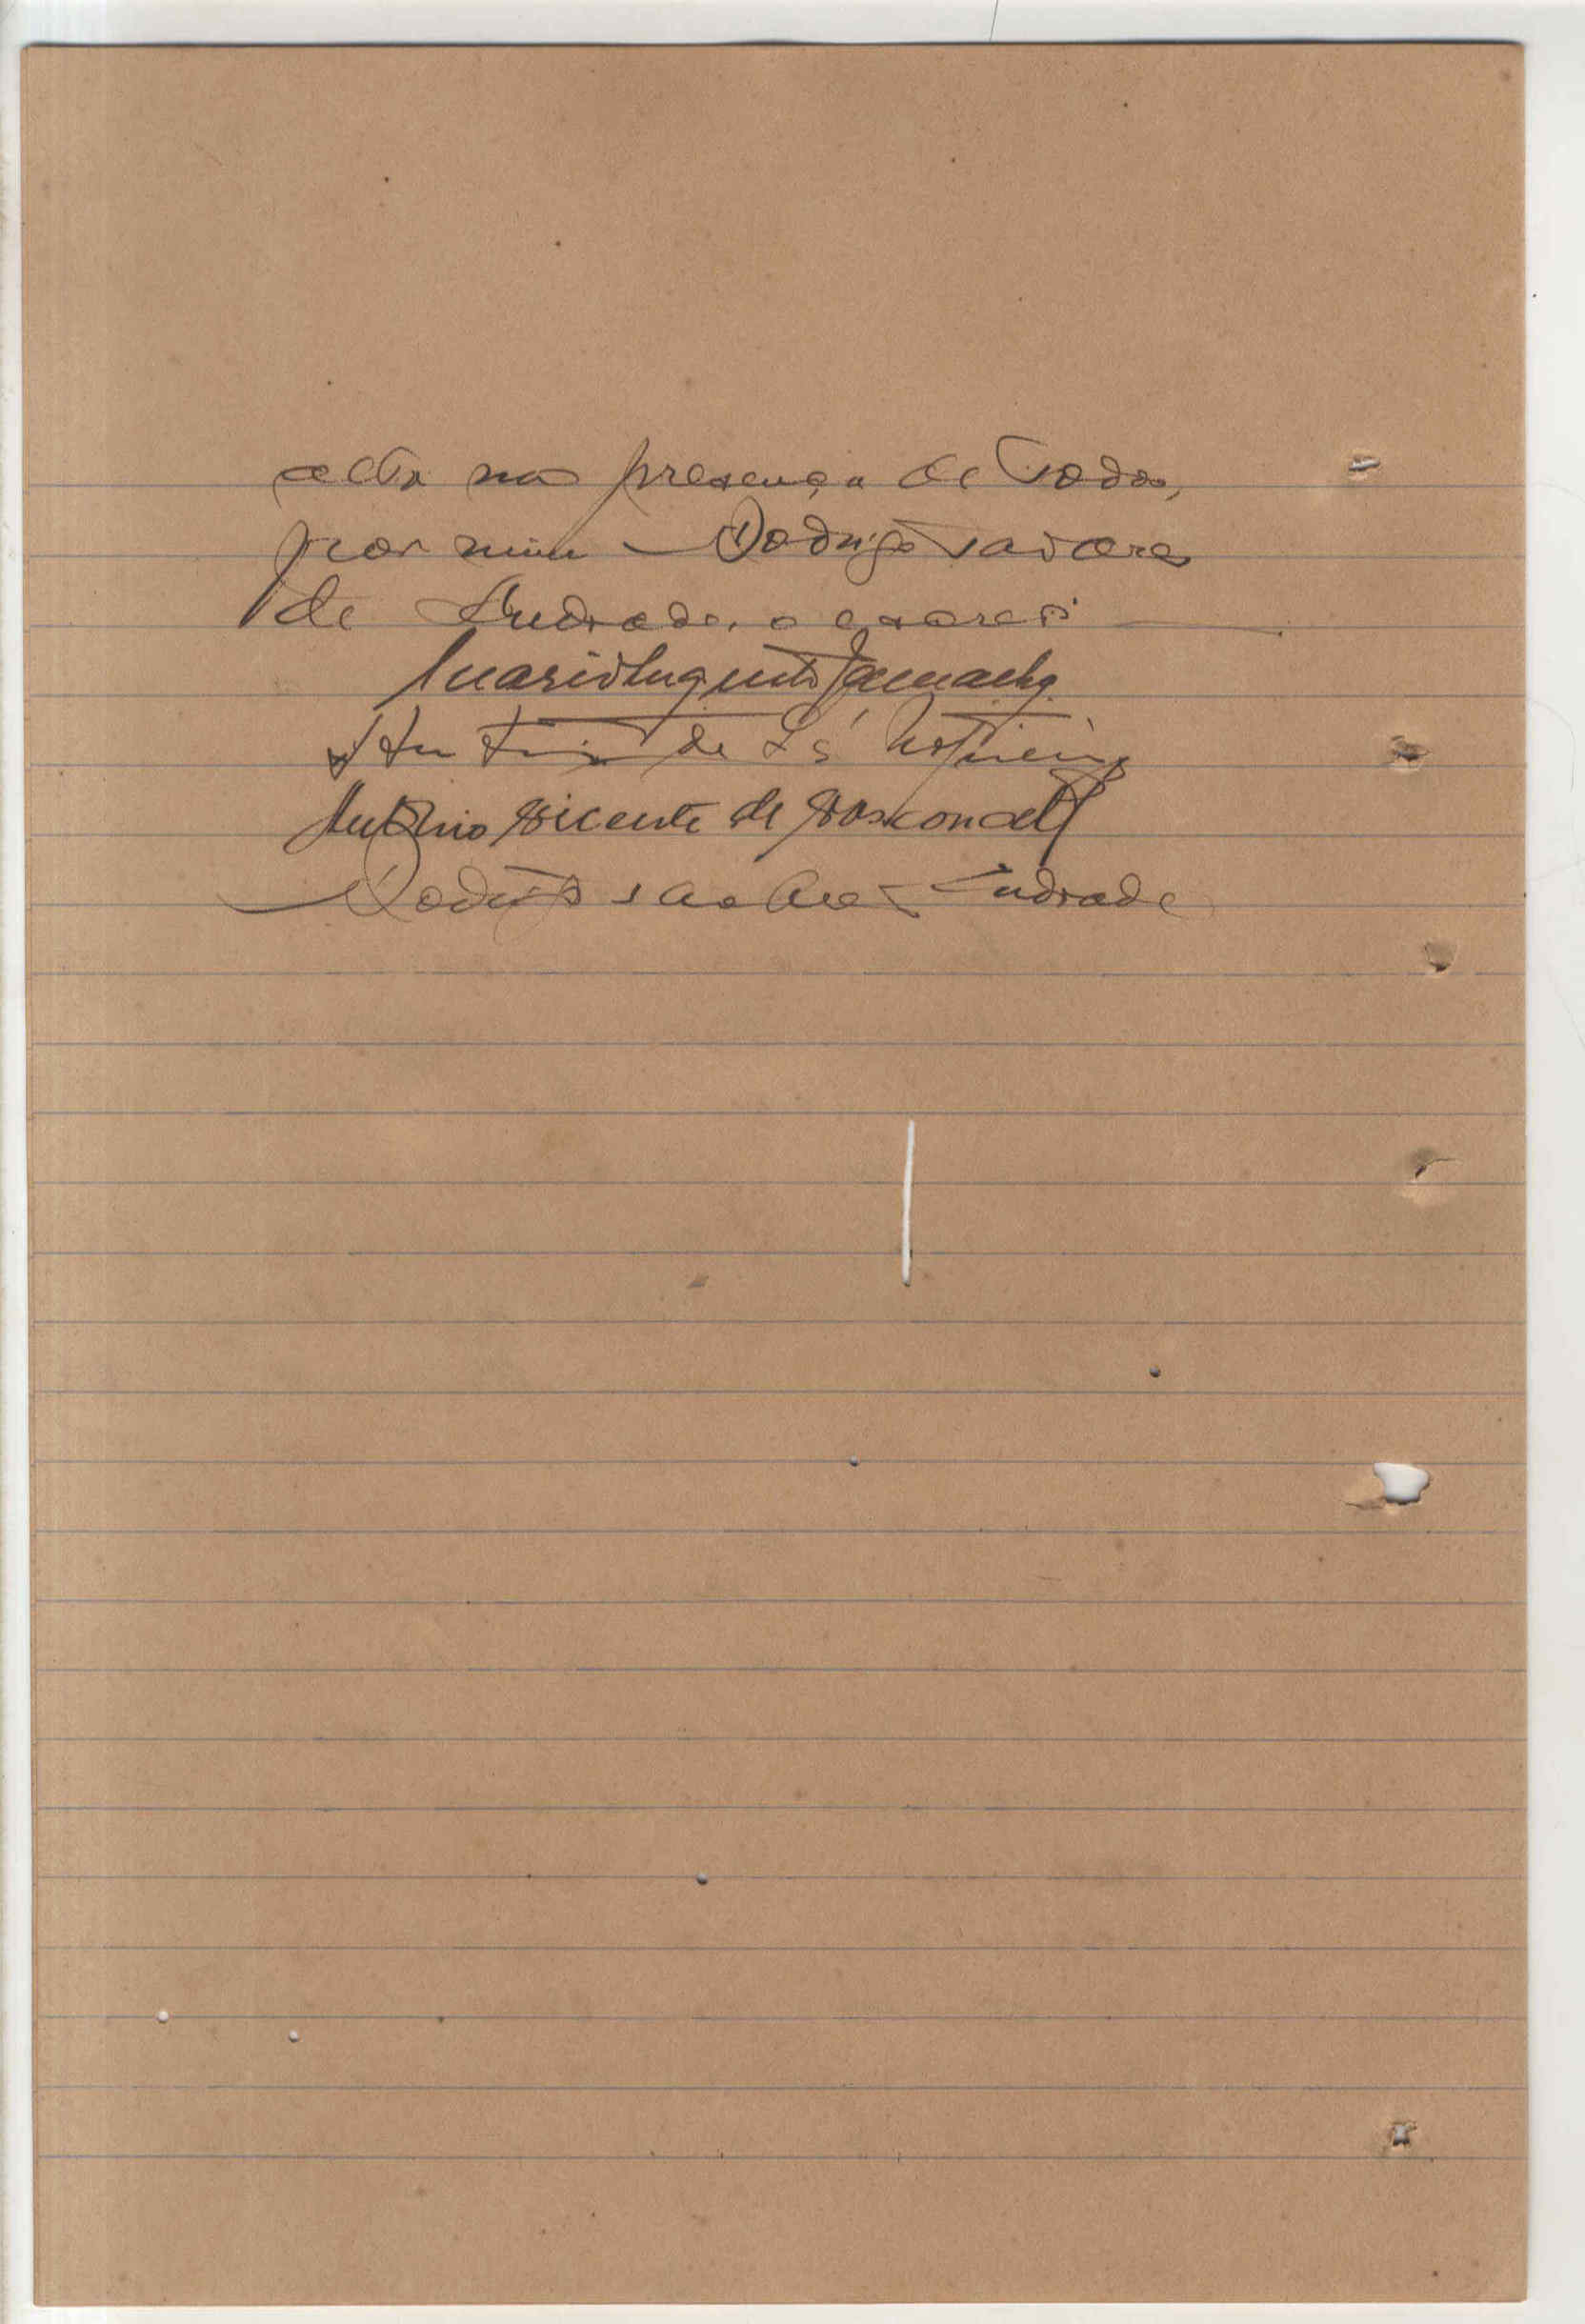 acta na presença de todos,
por mim Rodrigo Tavares
de Andrade, o escrevi
Mario Augusto Camacho
Antonio de Sá Nogueira
Antonio Vicente de Vasconcell
Rodrigo Tavares Andrade